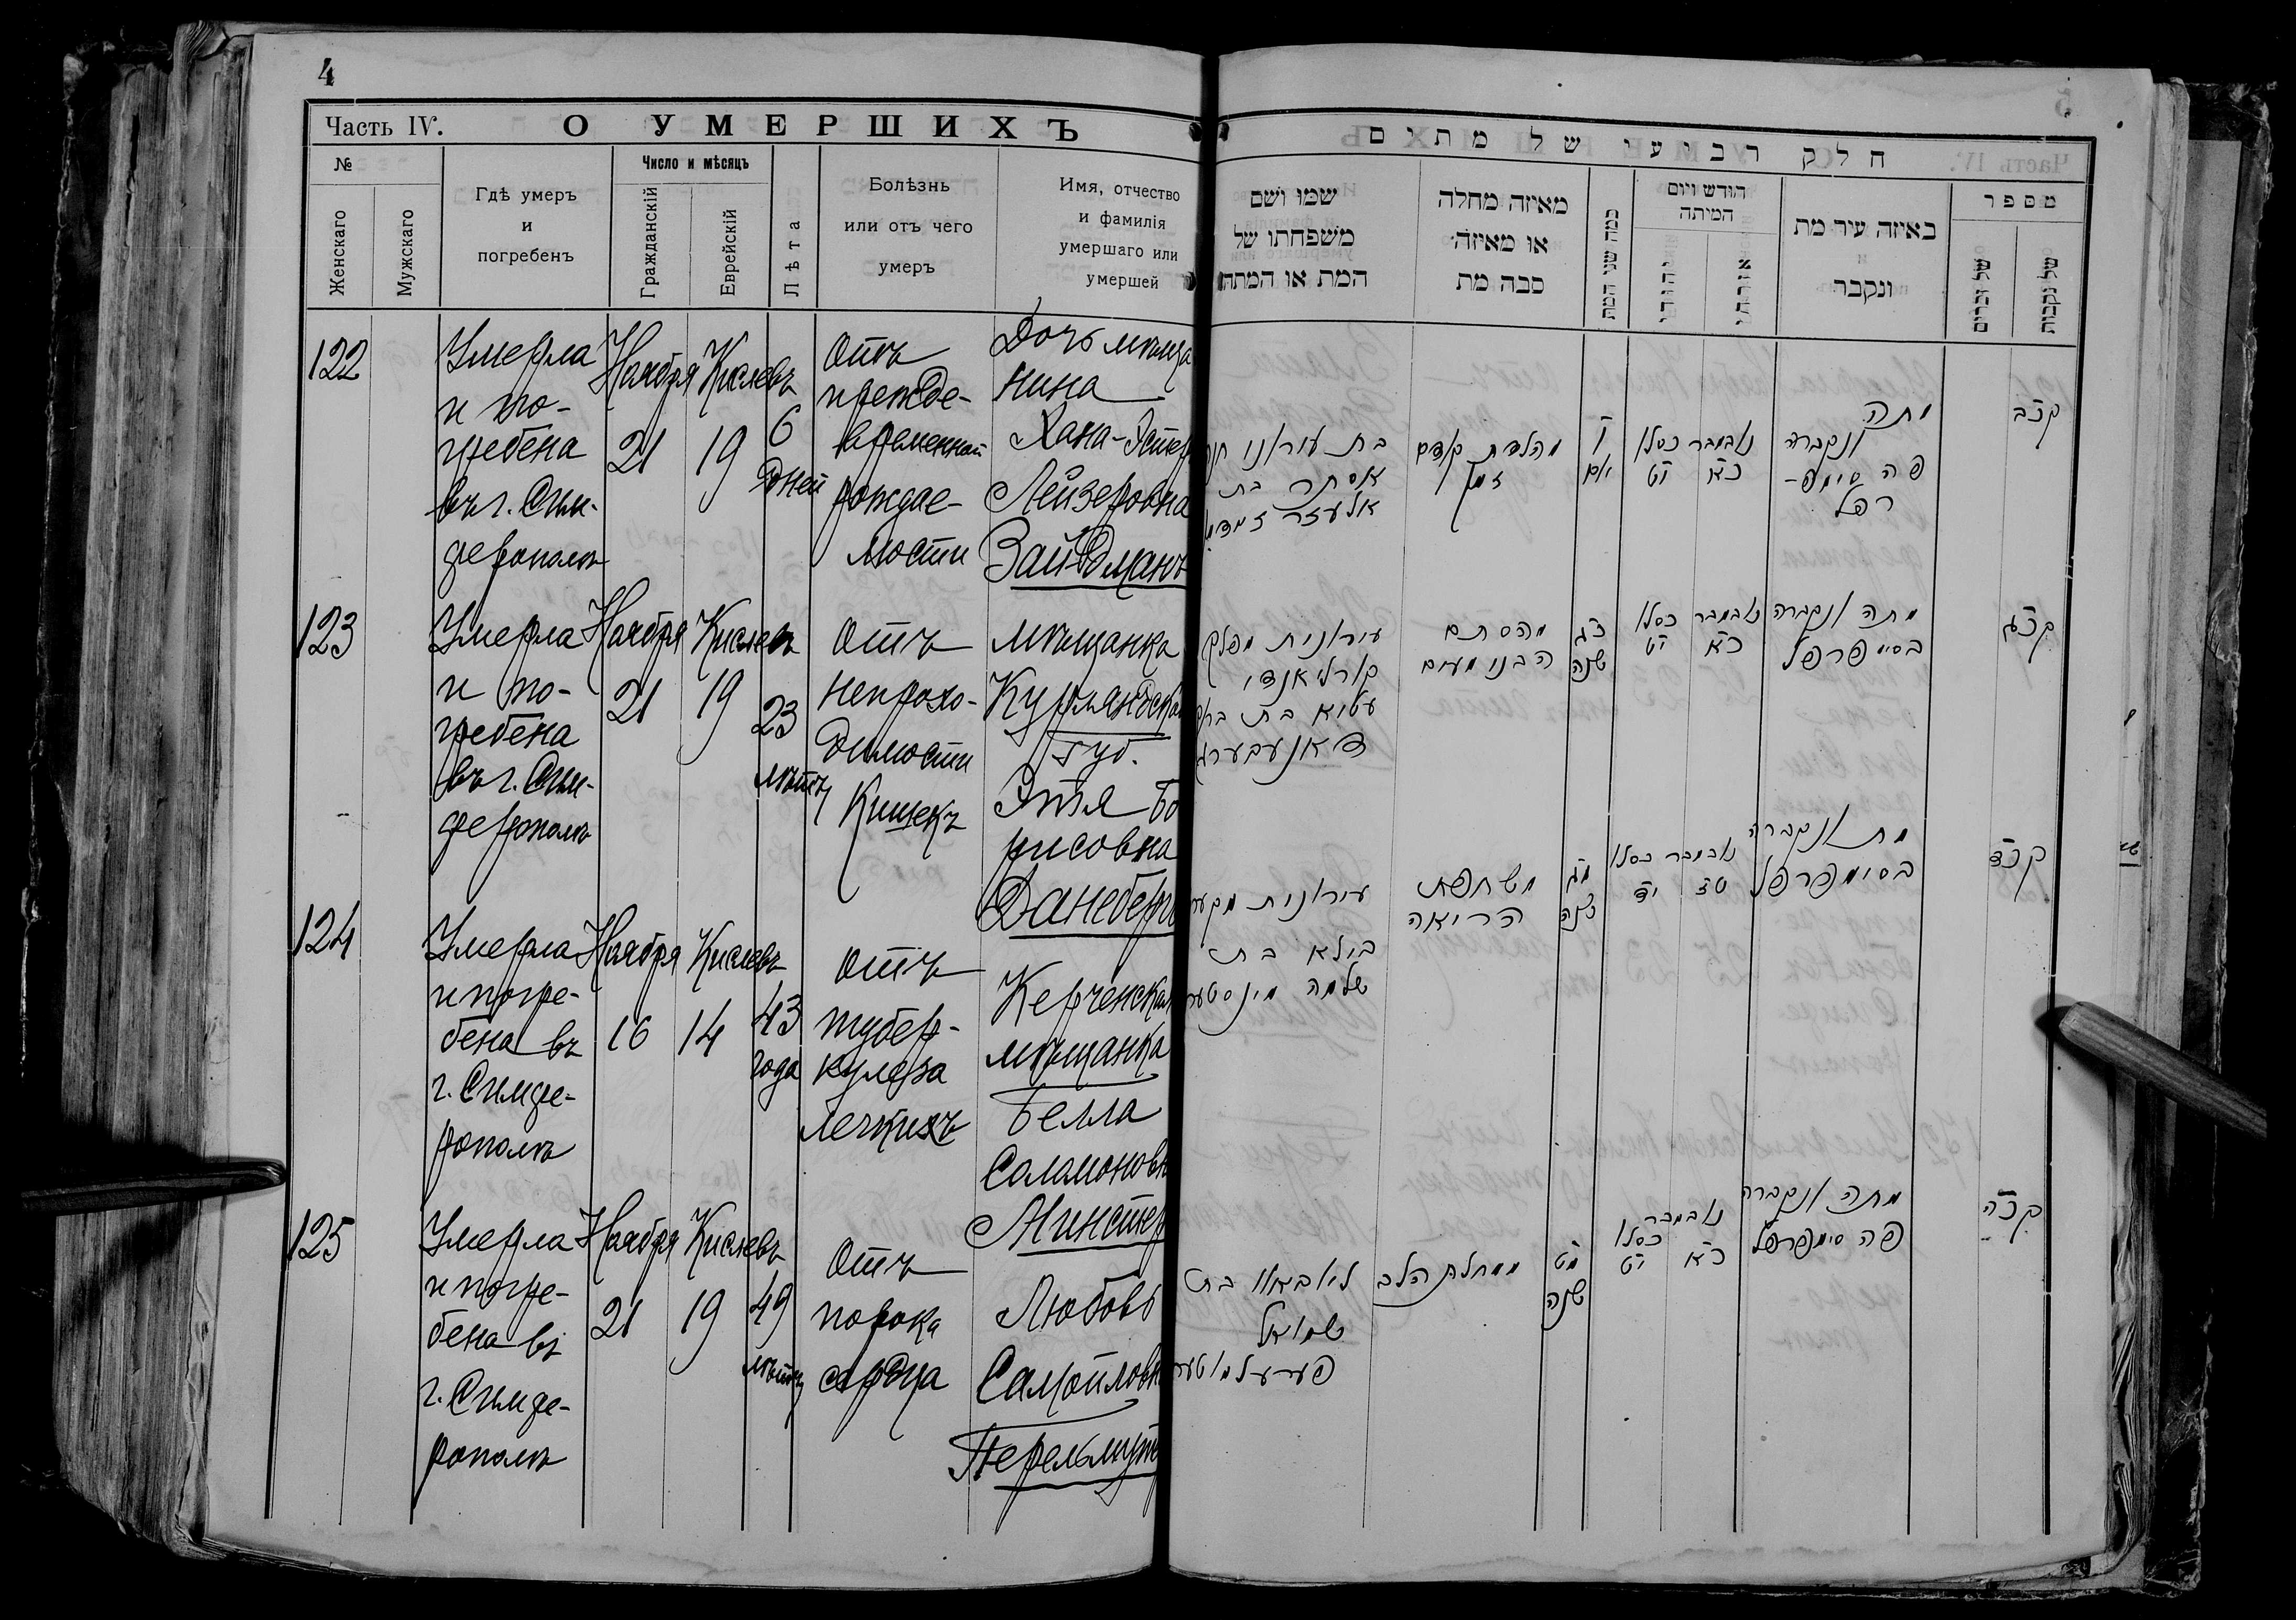 4
Часть IV. О УМЕРШИХЪ
№
Женскаго
Мужскаго
Гдѣ умеръ
и
погребенъ
Число и мѣсяцъ
Гражданскій
Еврейскій
Лѣта
Болѣзнь
или отъ чего
умеръ
Имя, отчество
и фамилія
умершаго или
умершей
122
Умерла
и по-
гребена
въ г. Сим-
ферополѣ
Ноября
21
Кислевъ
19
6
дней
Отъ
прежде-
временной
рождае-
мости
Дочь мѣща
нина
Хана-Эстер
Лейзеровна
Зайдманъ
123
Умерла
и по-
гребена
въ г. Сим-
ферополѣ
Ноября
21
Кислевъ
19
23
лѣтъ
Отъ
непрохо-
димости
Кишекъ
мѣщанка
Курляндской
Губ.
Этля Бо
рисовна
Данебергъ
124
Умерла
и погре-
бена въ
г. Симфе-
рополѣ
Ноября
16
Кислевъ
14
43
года
Отъ
тубер-
кулеза
Легкихъ
Керченская
мѣщанка
Белла
Саламоновн
Минстер
125
Умерла
и погре-
бена въ
г. Симфе-
рополѣ
Ноября
21
Кислевъ
19
49
лѣтъ
Отъ
порока
сердца
Любовь
Самойловн
Перельмуте
חלק רביעי של מתים
מספר
של נקבות
של זכרים
באיזה עיר מת
ונקבר
הודש ויום
המיתה
כמה שני המת
מאיזה מחלה
או מאיזה
סבה מת
שמו ושם
משפחתו של
המת או המתה
קכב
מתה
ונקברה
פה סימפ-
רפל
נאבמבר
כא
כסלו
יט
ו
מהלדת קודם
זמן
בת עיראנו חנה
אסתר בת
אלעזר זיידמן
קכג
מתה ונקברה
בסימפרפל
נאבמבר
כא
כסלו
יט
כג
שנה
מהסתם
הבני מעים
עיראנית מפלך
קורליאנדי
עטיא בת
דאנעבערג
קכד
מת ונקברה
בסימפרפל
נאבמבר
טז
כסלו
יד
מג
שנה
משחפת
הריאה
עיראנית מקער
בילא בת
שלמה מינסטער
קכה
מתה ונקברה
פה סימפרפל
נאבמבר
כא
כסלו
יט
מט
שנה
ממחלת הלב
ליובאוו בת
שמואל
פערעלמוטער